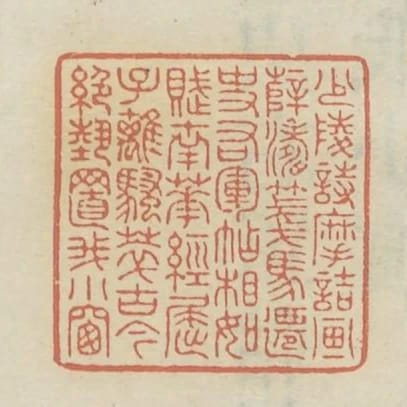 少陵詩摩詰畫
薛濤箋馬遷
史右軍帖相如
賦南華經屈
子離騷古今
絕藝置我小窗